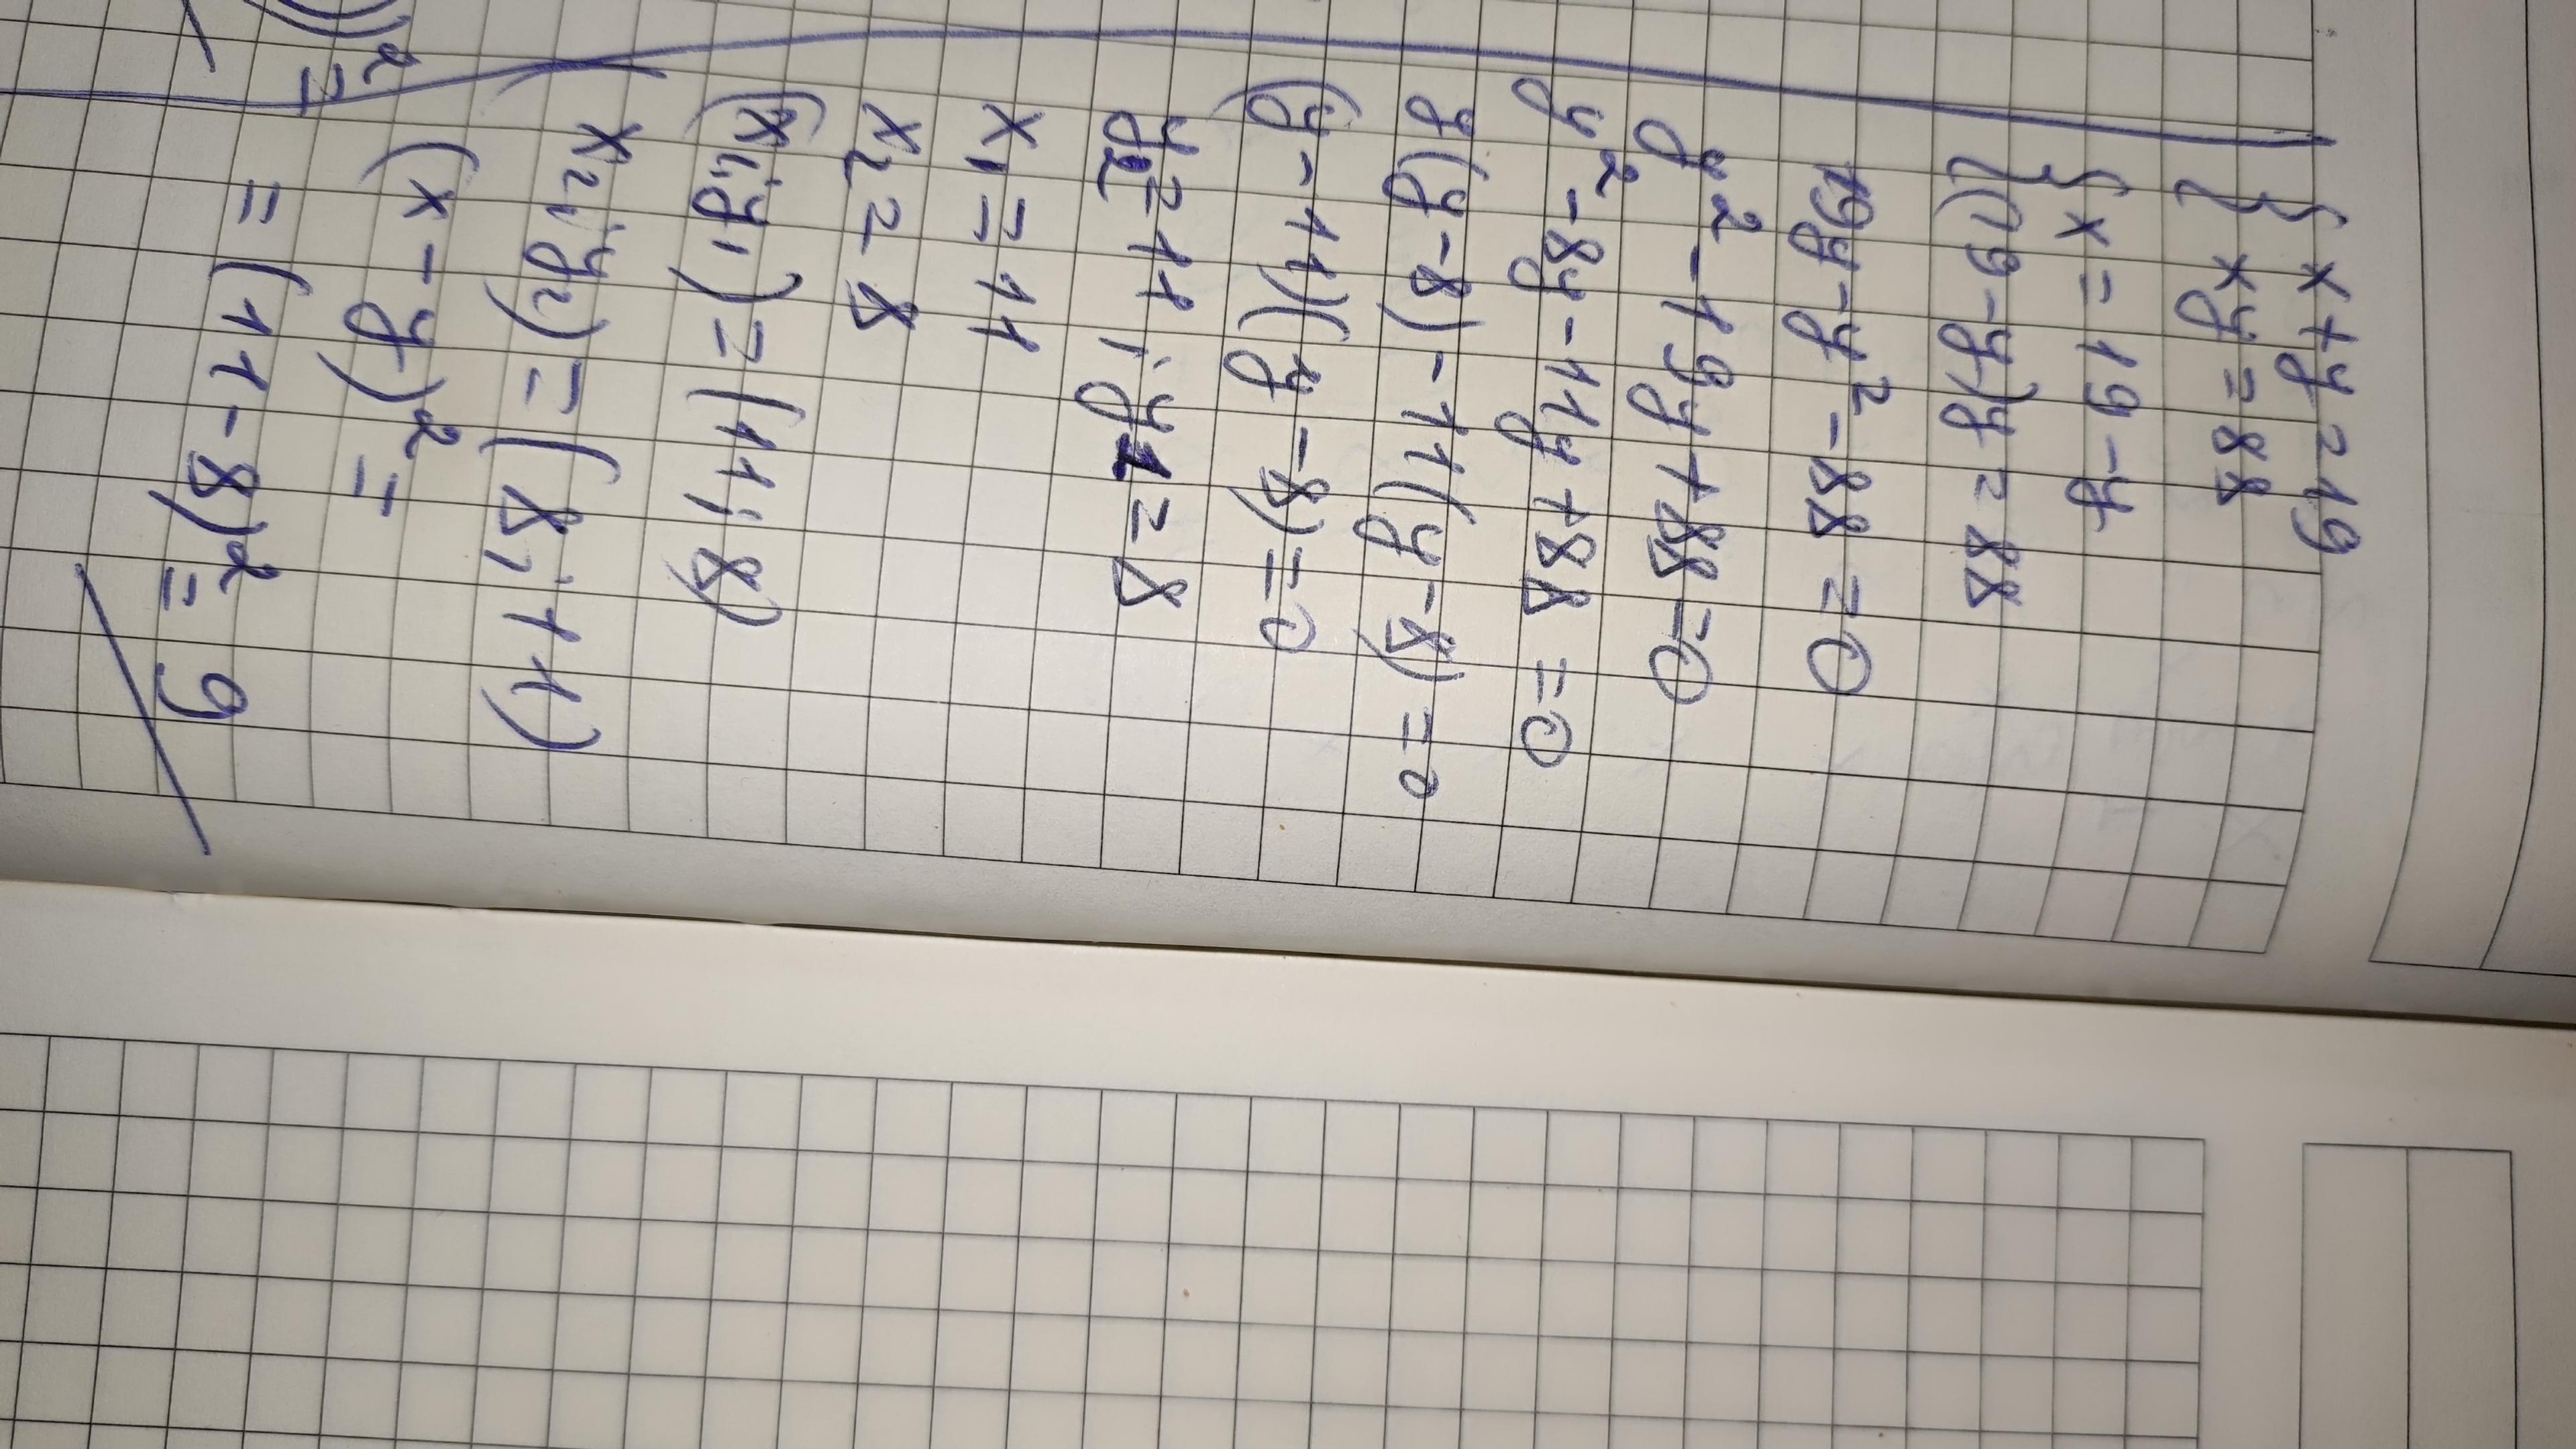 { x+y=19
{ xy=88
{ x=19-y
{ (19-y)y=88
19y-y²-88=0
y²-19y+88=0
y²-8y-11y+88=0
y(y-8)-11(y-8)=0
(y-11)(y-8)=0
y2=11; y1=8
x1=11
x2=8
(x1;y1)=(11;8)
x2;y2)=(8;11)
(x-y)²=
=(11-8)²=9
))²=